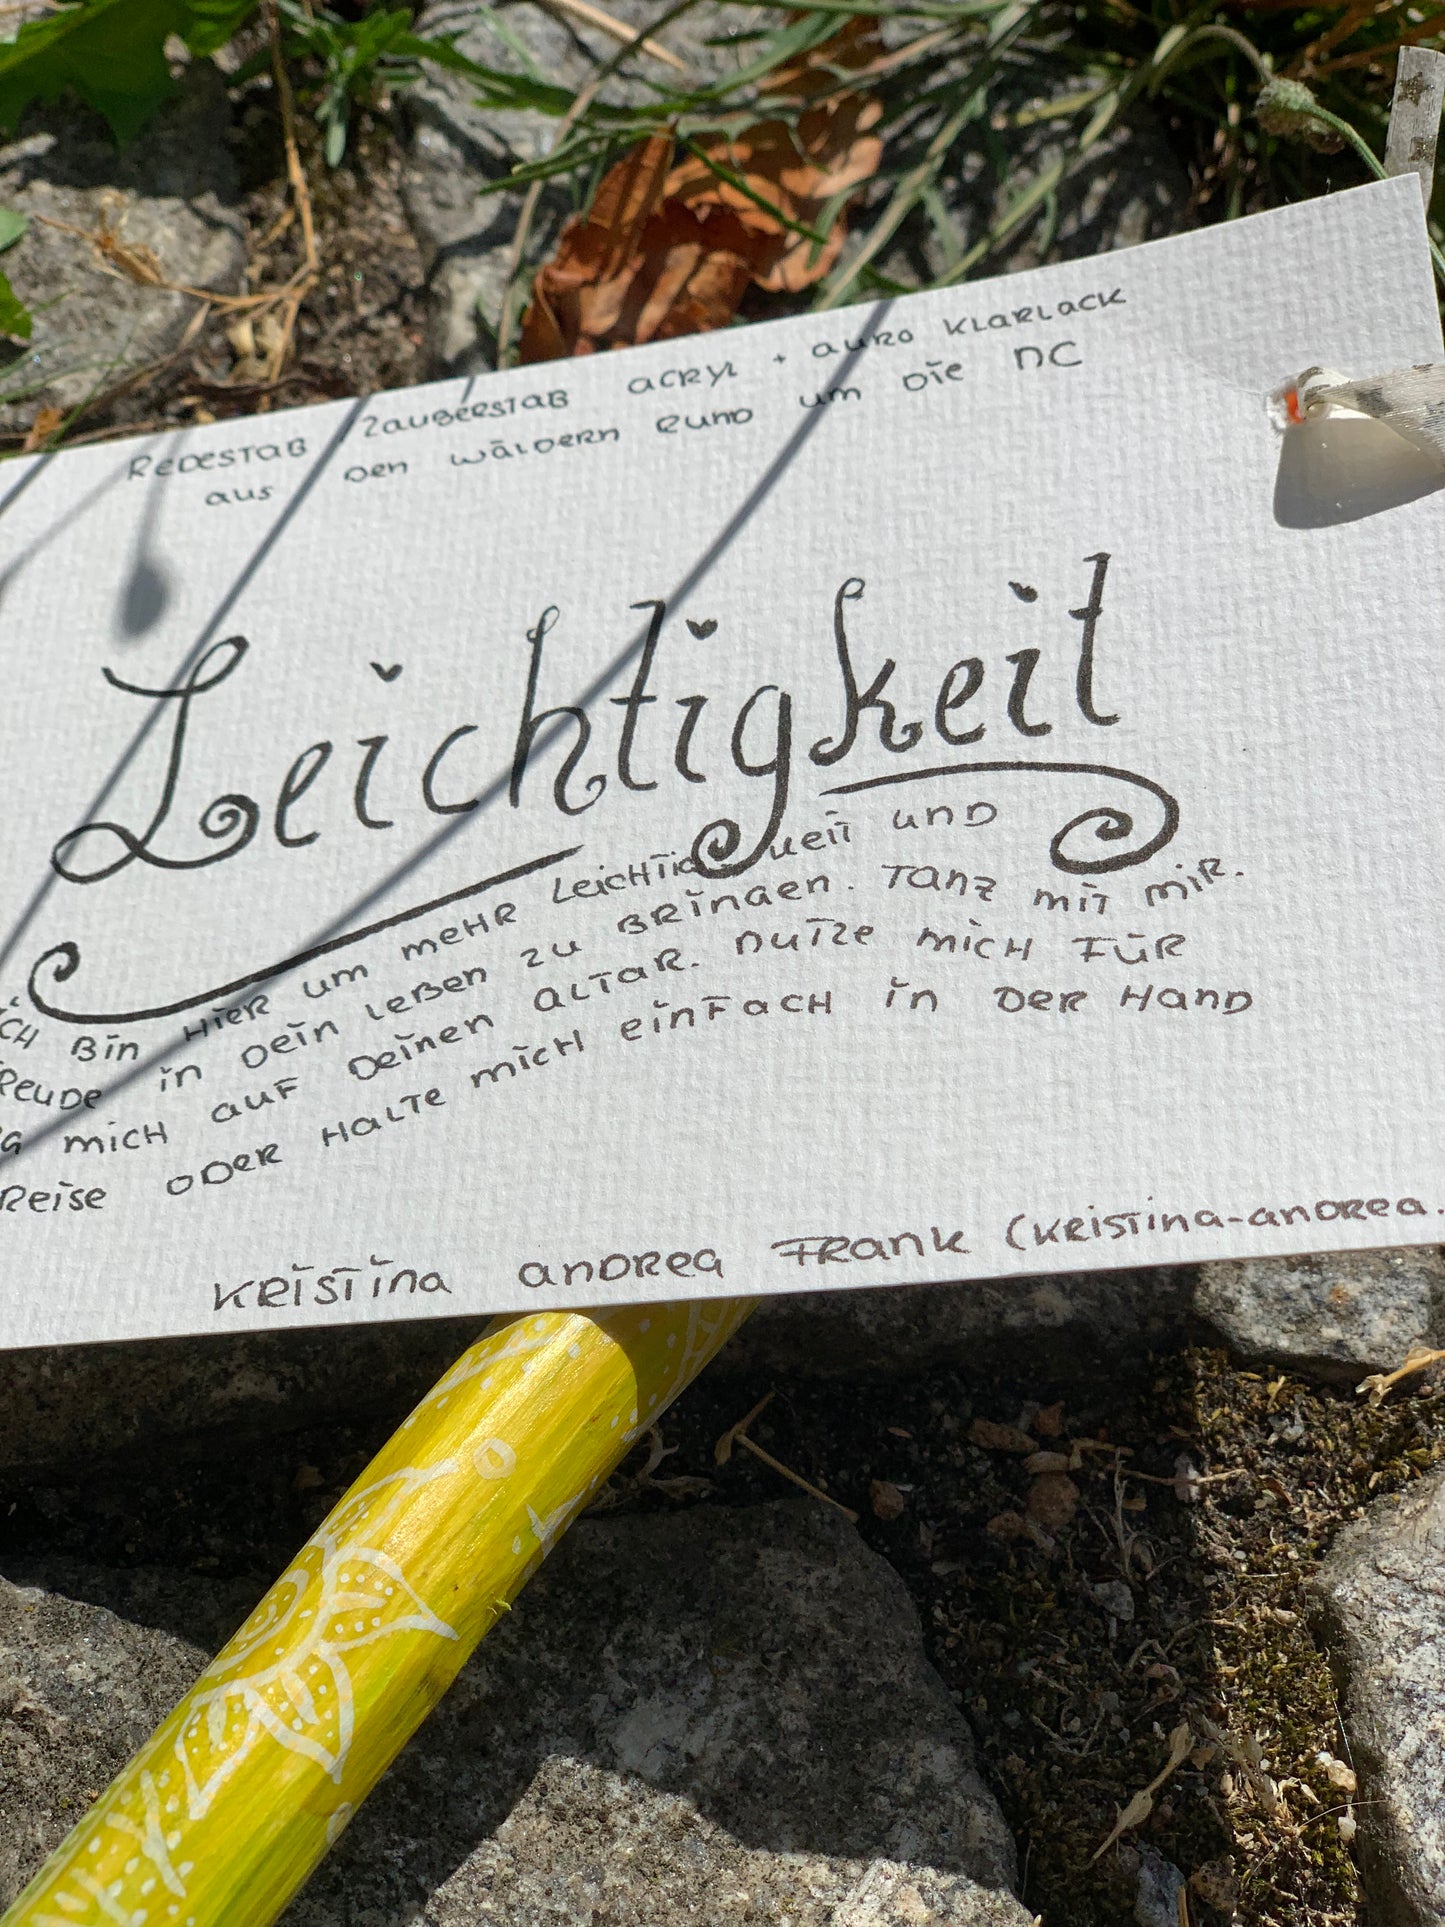 Redestab / Zauberstab acryl + auro Klarlack
aus den Wäldern rund um die NC
Leichtigkeit
ich bin hier um mehr Leichtigkeit und
reude in dein Leben zu bringen. Tanz mit mir.
g mich auf deinen Altar. Nutze mich für
Reise oder halte mich einfach in der Hand
Kristina Andrea Frank (kristina-andrea.